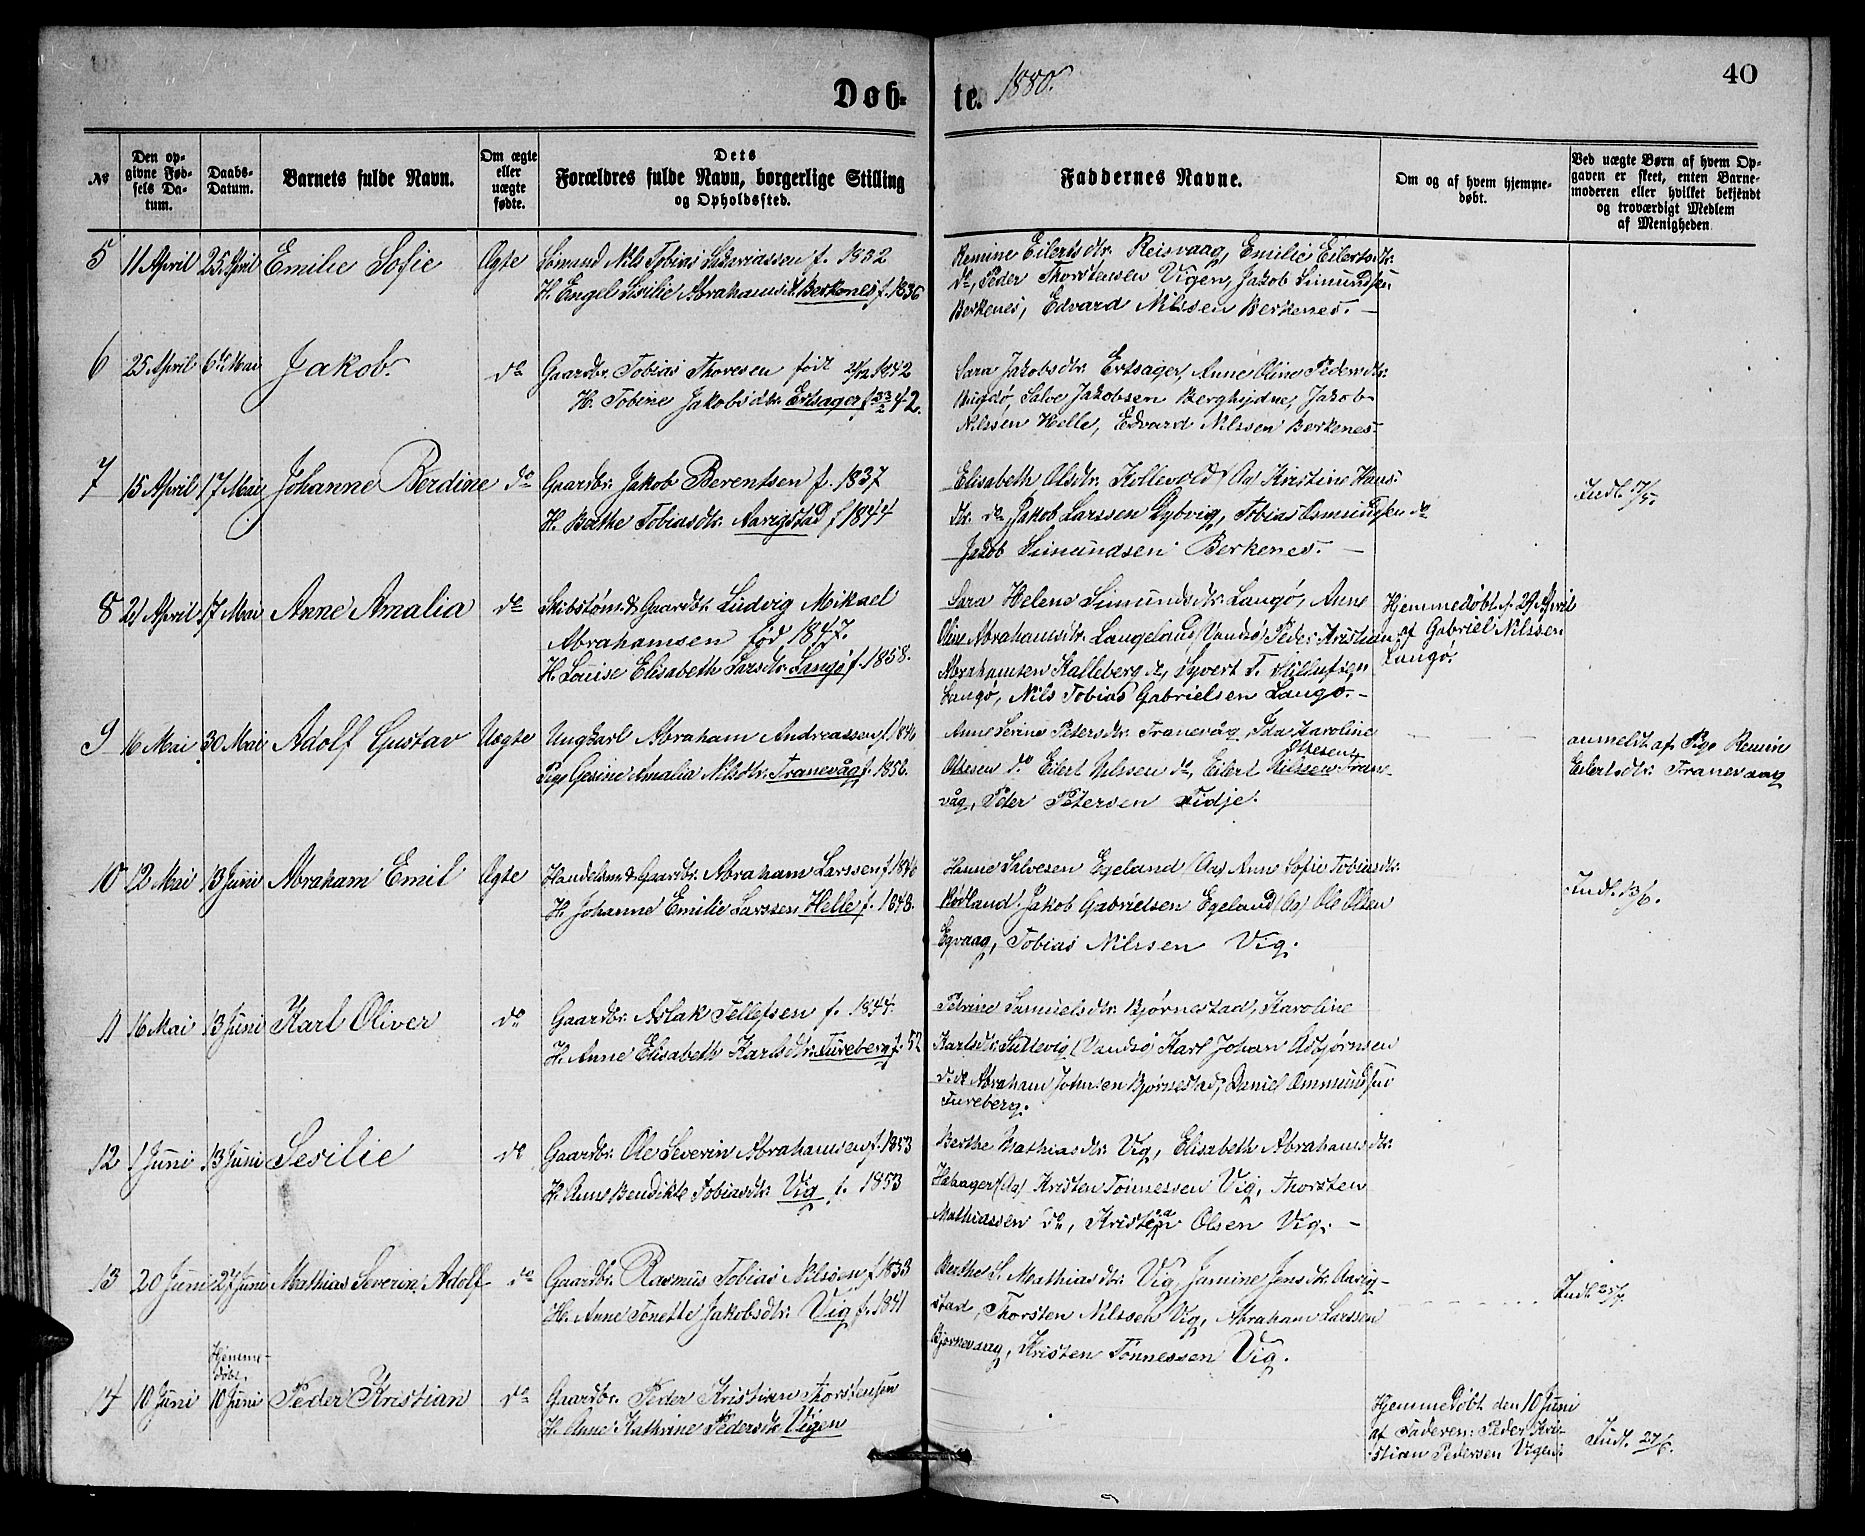 Døb-te. 1880.
40
№
Den op-
givne Fød-
sels Da-
tum.
Daabs-
Datum.
Barnets fulde Navn.
Om ægte
eller
uægte
fødte.
Dets
Forældres fulde Navn, borgerlige Stilling
og Opholdssted.
Faddernes Navne.
Om og af hvem hjemme-
døbt.
Ved uægte Børn af hvem Op-
gaven er skeet, enten Barne-
moderen eller hvilket bekjendt
og troværdigt Medlem
af Menigheden
5 11 April 25 April Emilie Sofie Ægte
Sømand Nils Tobias Sakariassen f. 1932
H. Engel Sisilie Abrahamsd. Berkenes f. 1836
Remine Eilertsdtr. Reisvaag, Emilie Eilertsdtr.
do, Peder Thorstensen Vigen, Jakob Simundsen
Berkenes, Edvard Nilssen Berkenes. —
6 25 April 6te Mai Jakob. do
Gaardbr. Tobias Thoresen født 2/12 1842
H. Tobine Jakobsdtr. Ertsager f. 42.
Sara Jakobsdtr. Ertsager, Anne Oline Pedersdtr.
Salve Jakobsen Jakob
Nilssen Helle, Edvard Nilssen Berkenes
7 15 April 17 Mai Johanne Berdine do
Gaardbr. Jakob Berentsen f. 1837
H. Berthe Tobiasdtr. Aarigstad f 1844
Elisabeth Olsdtr. Kollevold (Aa) Kristine Hans-
dtr. do, Jakob Larssen Dybvig, Tobias Asmundsen do
Jakob Simundsen Berkenes. —
Indl. 17/5.
8 21 April 17 Mai Anne Amalia do
Skibstøm. & Gaardbr. Ludvig Mikael
Abrahamsen fød 1847.
H. Louise Elisabeth Larsdtr. Langø f. 1858.
Sara Helene Simundsdtr. Langø, Anne
Oline Abrahamsdtr. Langeland (Vandsø) Peder Kristian
Abrahamsen Kalleberg do, Syvert T.
Langø, Nils Tobias Gabrielsen Langø. —
Hjemmedøbt d. 29 April
af Gabriel Nilssen
Langø.
9 16 Mai 30 Mai Adolf Gustav Uægte
Ungkarl Abraham Andreassen f. 1846
Pige Gesine Amalia Nilsdtr. Tranevåg f. 1856.
Anne Serine Petersdtr. Tranevåg, Ida Karoline
Ottesen do Eilert Nilssen do, Eilert Nilssen Ottesen Trane-
våg, Peder Petersen Fidje.
anmeldt af Pige Remine
Eilertsdtr. Tranevaag
10 12 Mai 13 Juni Abraham Emil Ægte
Handelsm. & Gaardbr. Abraham Larssen f. 1846
H. Johanne Emilie Larssen Helle f. 1848.
Hanne Salvesen Egeland (Aa) Anne Sofie Tobiasdtr.
Rødland. Jakob Gabrielsen Egeland (Aa) Ole Olsen
Egvaag, Tobias Nilssen Vig.
Indl. 13/6.
11 16 Mai 13 Juni Karl Oliver do
Gaardbr. Aslak Tellefsen f. 1844.
H. Anne Elisabeth Karlsdtr. Tureberg f. 52
Petrine Samuelsdtr. Bjørnestad, Karoline
Karlsdtr. Sellevig (Vandsø) Karl Johan Asbjørnsen
do do Abraham Johnsen Bjørnestad, Daniel Ommundsen
Tureberg.
12 1 Juni 13 Juni Sesilie do
Gaardbr. Ole Severin Abrahamsen f. 1853
H. Anne Bendikte Tobiasdtr. Vig f. 1853
Berthe Mathiasdtr. Vig, Elisabeth Abrahamsdtr.
Habager (Aa) Kristen Tønnessen Vig, Thorsten
Mathiassen do, Kristen Olsen Vig. —
13 20 Juni 27 Juni Mathias Severin Adolf do
Gaardbr. Rasmus Tobias Nilssen f. 1833
H. Anne Tonette Jakobsdtr. Vig f. 1841
Berthe S. Mathiasdtr. Vig, Jamine Jensdtr. Aarig-
stad, Thorsten Nilssen Vig, Abraham Larssen
Bjørnevaag, Kristen Tønnessen Vig.
Indl. 25/7.
14 10 Juni Hjemme-
døbt
10 Juni Peder Kristian do
Gaardbr. Peder Kristian Thorstensen
H. Anne Kathrine Pedersdtr. Vigen
Hjemmedøbt den 10 Juni
af Faderen: Peder Kri-
stian Pedersen Vigen.
Indl. 27/6.